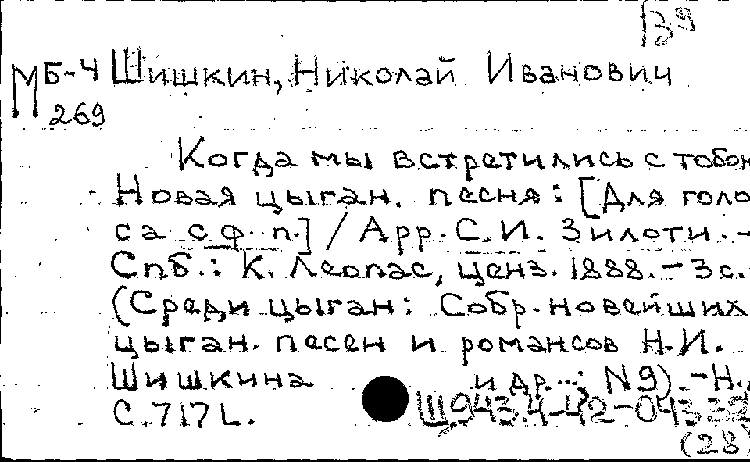 39
МБ-4 Шишкин, Николай Иванович
269
Когда мы встретились с тобою
Новая цыган. песня: [Для голо-
са с ф-п.] / Арр. С.И. Зилоти. -
Спб.: К. Леопас, ценз. 1888. - 3 с.
(Среди цыган: Собр. новейших
цыган. песен и романсов Н.И.
Шишкина и др...; N9). - Н.
С.717L.
Ш943.4-42-0433.2
(28)